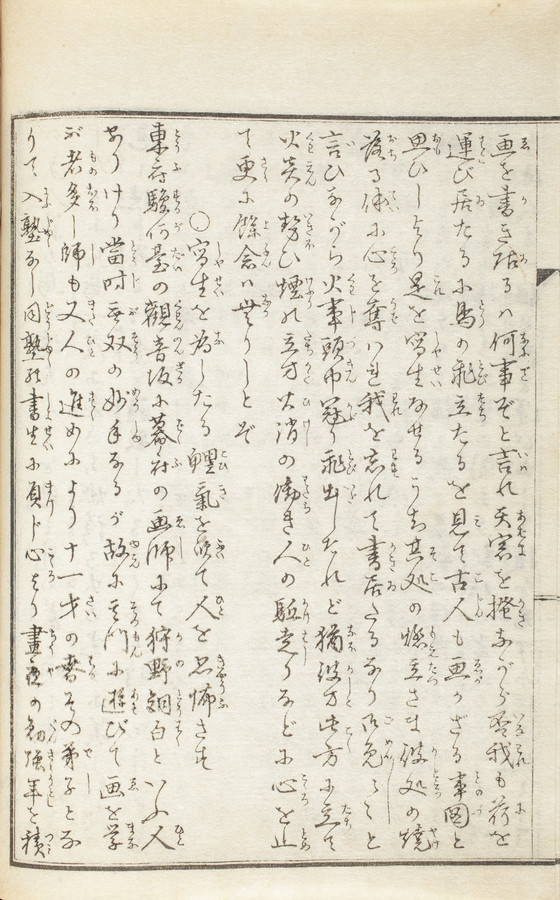 画を書き居るハ何事ぞと言れ天窓を掻ながら吾我も荷を
運び居たるに馬の飛立たるを見て古人も画かざる事図と
思ひしより是を写生なせるうち其処の燃立さま彼処の焼
落る体に心を奪ハれ我を忘れて書居たるなり御免〻〻と
言ひながら火事頭巾冠り飛出したれど猶彼方此方に立て
火炎の勢ひ煙の立方火消の働き人の駈走りなどに心を止
て更に余念ハ無りしとぞ
〇写生を為したる鯉氣を以て人を恐怖さす
東府駿河臺の観音坂に幕府の画師にて狩野洞白といふ人
ありけり當時無双の妙手なるが故に其門に遊びて画を学
ぶ者多し師も又人の進めにより十一才の春その弟子とな
りて入塾なし同塾の書生に頁ド心より畫夜の勉強年を積